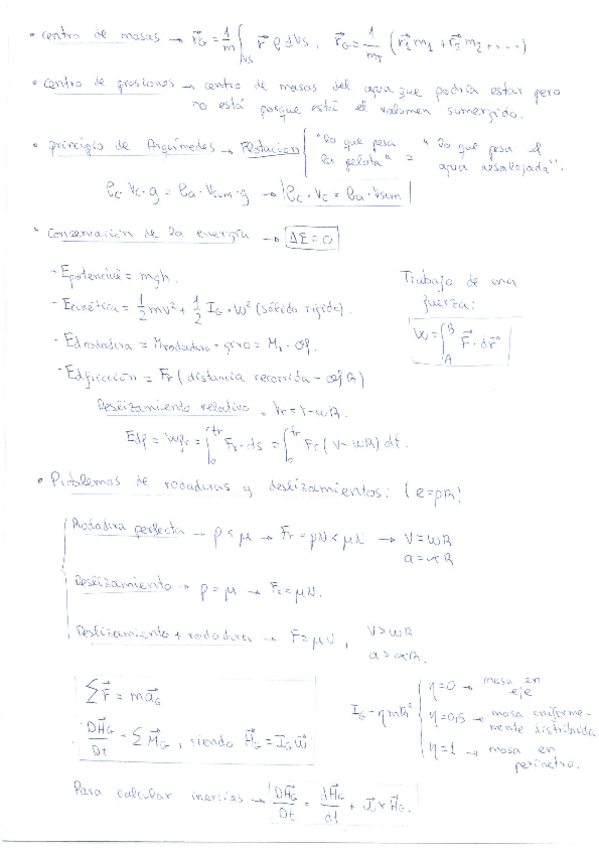 • centro de masas → r⃗G = 1/m ∫vs r⃗ ρ dVs, r⃗G = 1/mT (r⃗2 m1 + r⃗2 m2 + ....)
• centro de presiones → centro de masas del agua que podría estar pero
no está porque está el volumen sumergido.
• principio de Arquímedes → Flotación { "lo que pesa la pelota" = "lo que pesa el agua desalojada".
ρc · Vc · g = ρa · Vsum · g → ρc · Vc = ρa · Vsum
• Conservación de la energía → ΔE = 0
- Epotencial = mgh.
- Ecinética = 1/2 mv² + 1/2 IG · ω² (sólido rígido).
Trabajo de una
fuerza:
W = ∫A^B F⃗ · dr⃗
- Ed rodadura = Mrodadura · giro = Mr · θf.
- Ed fricción = Fr (distancia recorrida - θf R)
Deslizamiento relativo, Vr = v - ωR.
Edf = Wfr = ∫0^tr Fr · ds = ∫0^tr Fr (v - ωR) dt.
• Problemas de rodaduras y deslizamientos: (e = ρR)
Rodadura perfecta → ρ < μ → Fr = ρN < μN → V = ωR
a = αR
Deslizamiento → ρ = μ → Fr = μN.
Deslizamiento + rodadura → F = μN, V > ωR
a > αR.
ΣF⃗ = m a⃗G
DH⃗G/Dt = ΣM⃗G, siendo H⃗G = IG ω⃗
IG = ηmR² { η = 0 → masa en eje
η = 0,5 → masa uniformemente distribuida
η = 1 → masa en perímetro.
Para calcular inercias → DH⃗G/Dt = dH⃗G/dt + Ω⃗ x H⃗G.